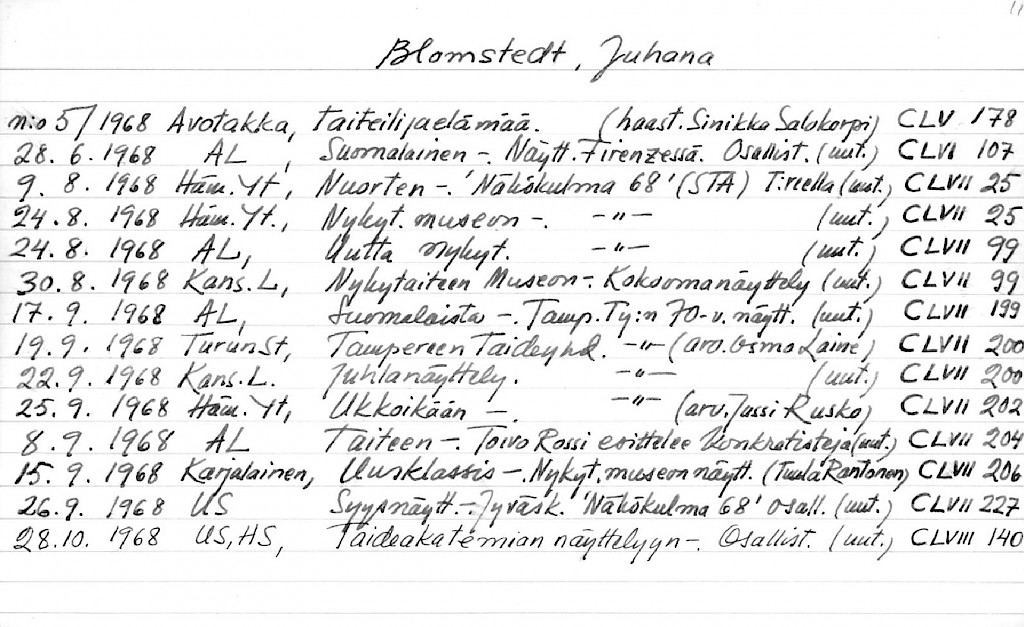 11
Blomstedt, Juhana
n:o 5/1968 Avotakka, Taiteilijaelämää. (haast. Sinikka Salokorpi) CLV 178
28.6.1968 AL, Suomalainen -. Näytt. Firenzessä. Osallist. (uut.) CLVI 107
9.8.1968 Häm.Yt, Nuorten -. 'Näkökulma 68' (STA) T:reella (uut.) CLVII 25
24.8.1968 Häm.Yt., Nykyt. museon -. -"- (uut.) CLVII 25
24.8.1968 AL, Uutta nykyt. -"- (uut.) CLVII 99
30.8.1968 Kans.L, Nykytaiteen Museon -. Kokoomanäyttely (uut.) CLVII 99
17.9.1968 AL, Suomalaista -. Tamp.Ty:n 70-v. näytt. (uut.) CLVII 199
19.9.1968 TurunSt, Tampereen Taideyhd. -"- (arv. Osmo Laine) CLVII 200
22.9.1968 Kans.L. Juhlanäyttely. -"- (uut.) CLVII 200
25.9.1968 Häm.Yt, Ukkoikään -. -"- (arv. Jussi Rusko) CLVII 202
8.9.1968 AL Taiteen -. Toivo Rossi esittelee konkretisteja (uut.) CLVII 204
15.9.1968 Karjalainen, Uusklassis -. Nykyt. museon näytt. (Tuula Rantonen) CLVII 206
26.9.1968 US Syysnäytt -. Jyväsk. 'Näkökulma 68' osall. (uut.) CLVII 227
28.10.1968 US, HS, Taideakatemian näyttelyyn -. Osallist. (uut.) CLVIII 140